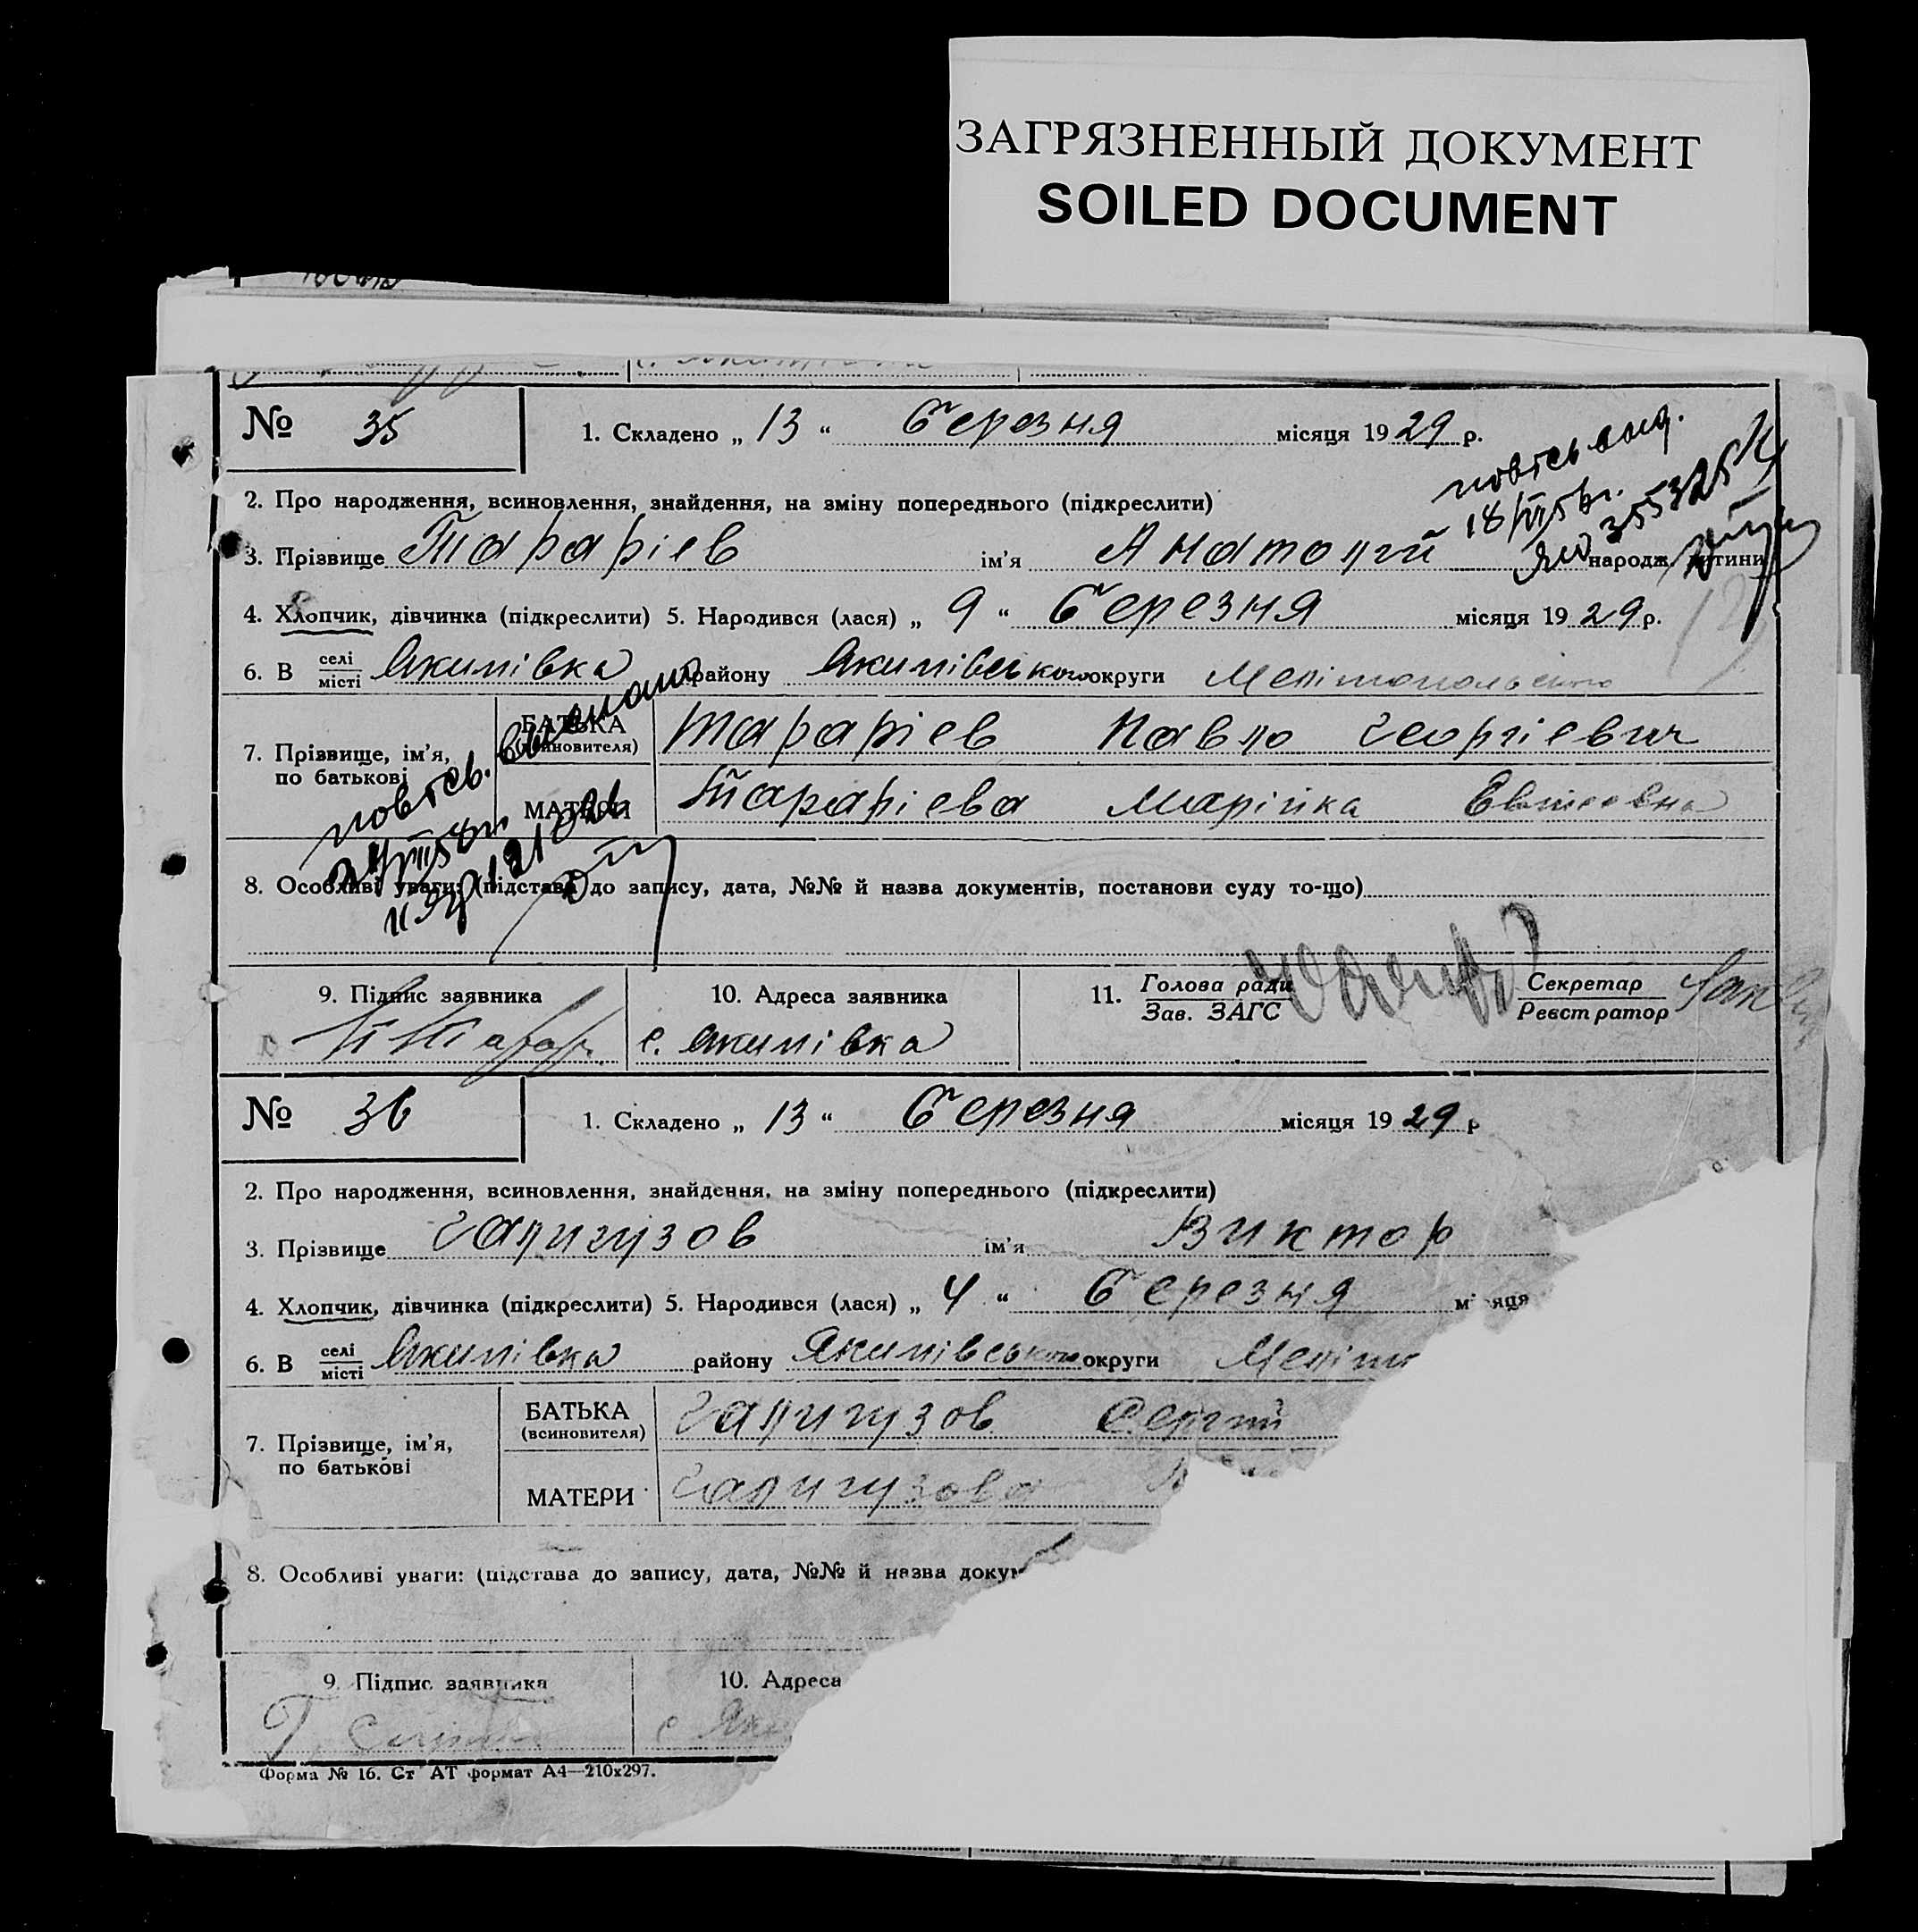 ЗАГРЯЗНЕННЫЙ ДОКУМЕНТ
SOILED DOCUMENT
№ 35
1. Складено „ 13 “ березня місяця 1929 р.
2. Про народження, всиновлення, знайдення, на зміну попереднього (підкреслити)
3. Прізвище Тараріев ім’я Анатолій народж. дитини
4. Хлопчик, дівчинка (підкреслити) 5. Народився (лася) „ 9 “ березня місяця 1929 р.
6. В селі місті Якимівка району Якимівського округи Мелітопольської
7. Прізвище, ім’я, по батькові
БАТЬКА (всиновителя) Тараріев Павло Георгіевич
МАТЕРИ Тараріева Марійка
8. Особливі уваги: (підстава до запису, дата, №№ й назва документів, постанови суду то-що)
9. Підпис заявника
10. Адреса заявника
с. Якимівка
11. Голова ради
Зав. ЗАГС
Секретар
Реєстратор
№ 36
1. Складено „ 13 “ березня місяця 1929 р
2. Про народження, всиновлення, знайдення, на зміну попереднього (підкреслити)
3. Прізвище Галигузов ім’я Виктор
4. Хлопчик, дівчинка (підкреслити) 5. Народився (лася) „ 4 “ березня місяця
6. В селі місті Якимівка району Якимівського округи Меліт
7. Прізвище, ім’я, по батькові
БАТЬКА (всиновителя) Галигузов Сергий
МАТЕРИ Галигузова
8. Особливі уваги: (підстава до запису, дата, №№ й назва докум
9. Підпис заявника
10. Адреса
с Яки
Форма № 16. Ст АТ формат А4—210x297.